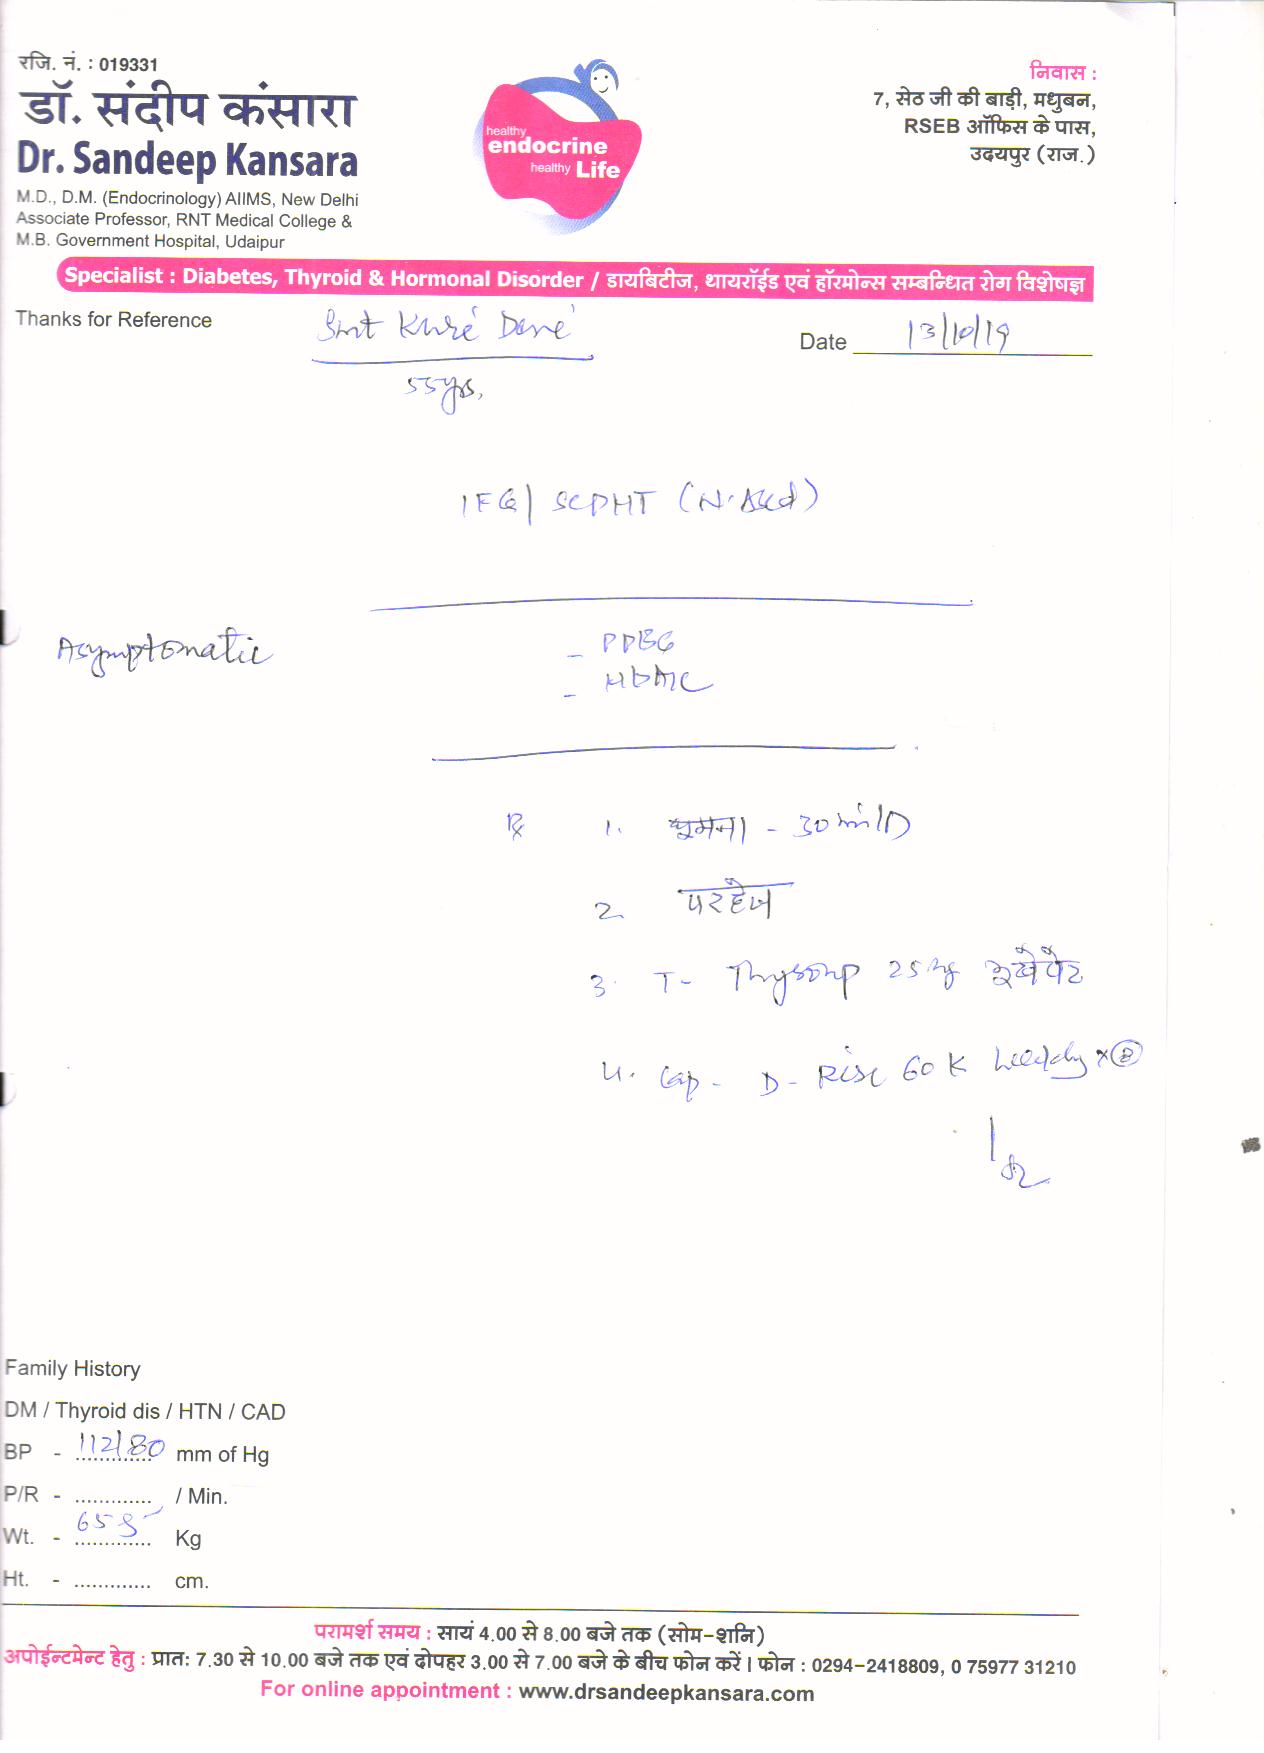 रजि. नं. : 019331
डॉ. संदीप कंसारा
Dr. Sandeep Kansara
M.D., D.M. (Endocrinology) AIIMS, New Delhi
Associate Professor, RNT Medical College &
M.B. Government Hospital, Udaipur
healthy
endocrine
healthy Life
निवास :
7, सेठ जी की बाड़ी, मधुबन,
RSEB ऑफिस के पास,
उदयपुर (राज.)
Specialist : Diabetes, Thyroid & Hormonal Disorder / डायबिटीज, थायरॉईड एवं हॉरमोन्स सम्बन्धित रोग विशेषज्ञ
Thanks for Reference
Smt
Date 13/10/19
55yrs,
IFG/
Asymptomatic
- PPBG
- HbA1C
Rx 1. घूमना - 30 min/D
2 परहेज
3. T- 25
4. Cap - D-Rise 60K weekly x 8
Family History
DM / Thyroid dis / HTN / CAD
BP - 112/80 mm of Hg
P/R - ............. / Min.
Wt. - Kg
Ht. - ............. cm.
परामर्श समय : सायं 4.00 से 8.00 बजे तक (सोम-शनि)
अपोईन्टमेन्ट हेतु : प्रात: 7.30 से 10.00 बजे तक एवं दोपहर 3.00 से 7.00 बजे के बीच फोन करें। फोन : 0294-2418809, 0 75977 31210
For online appointment : www.drsandeepkansara.com